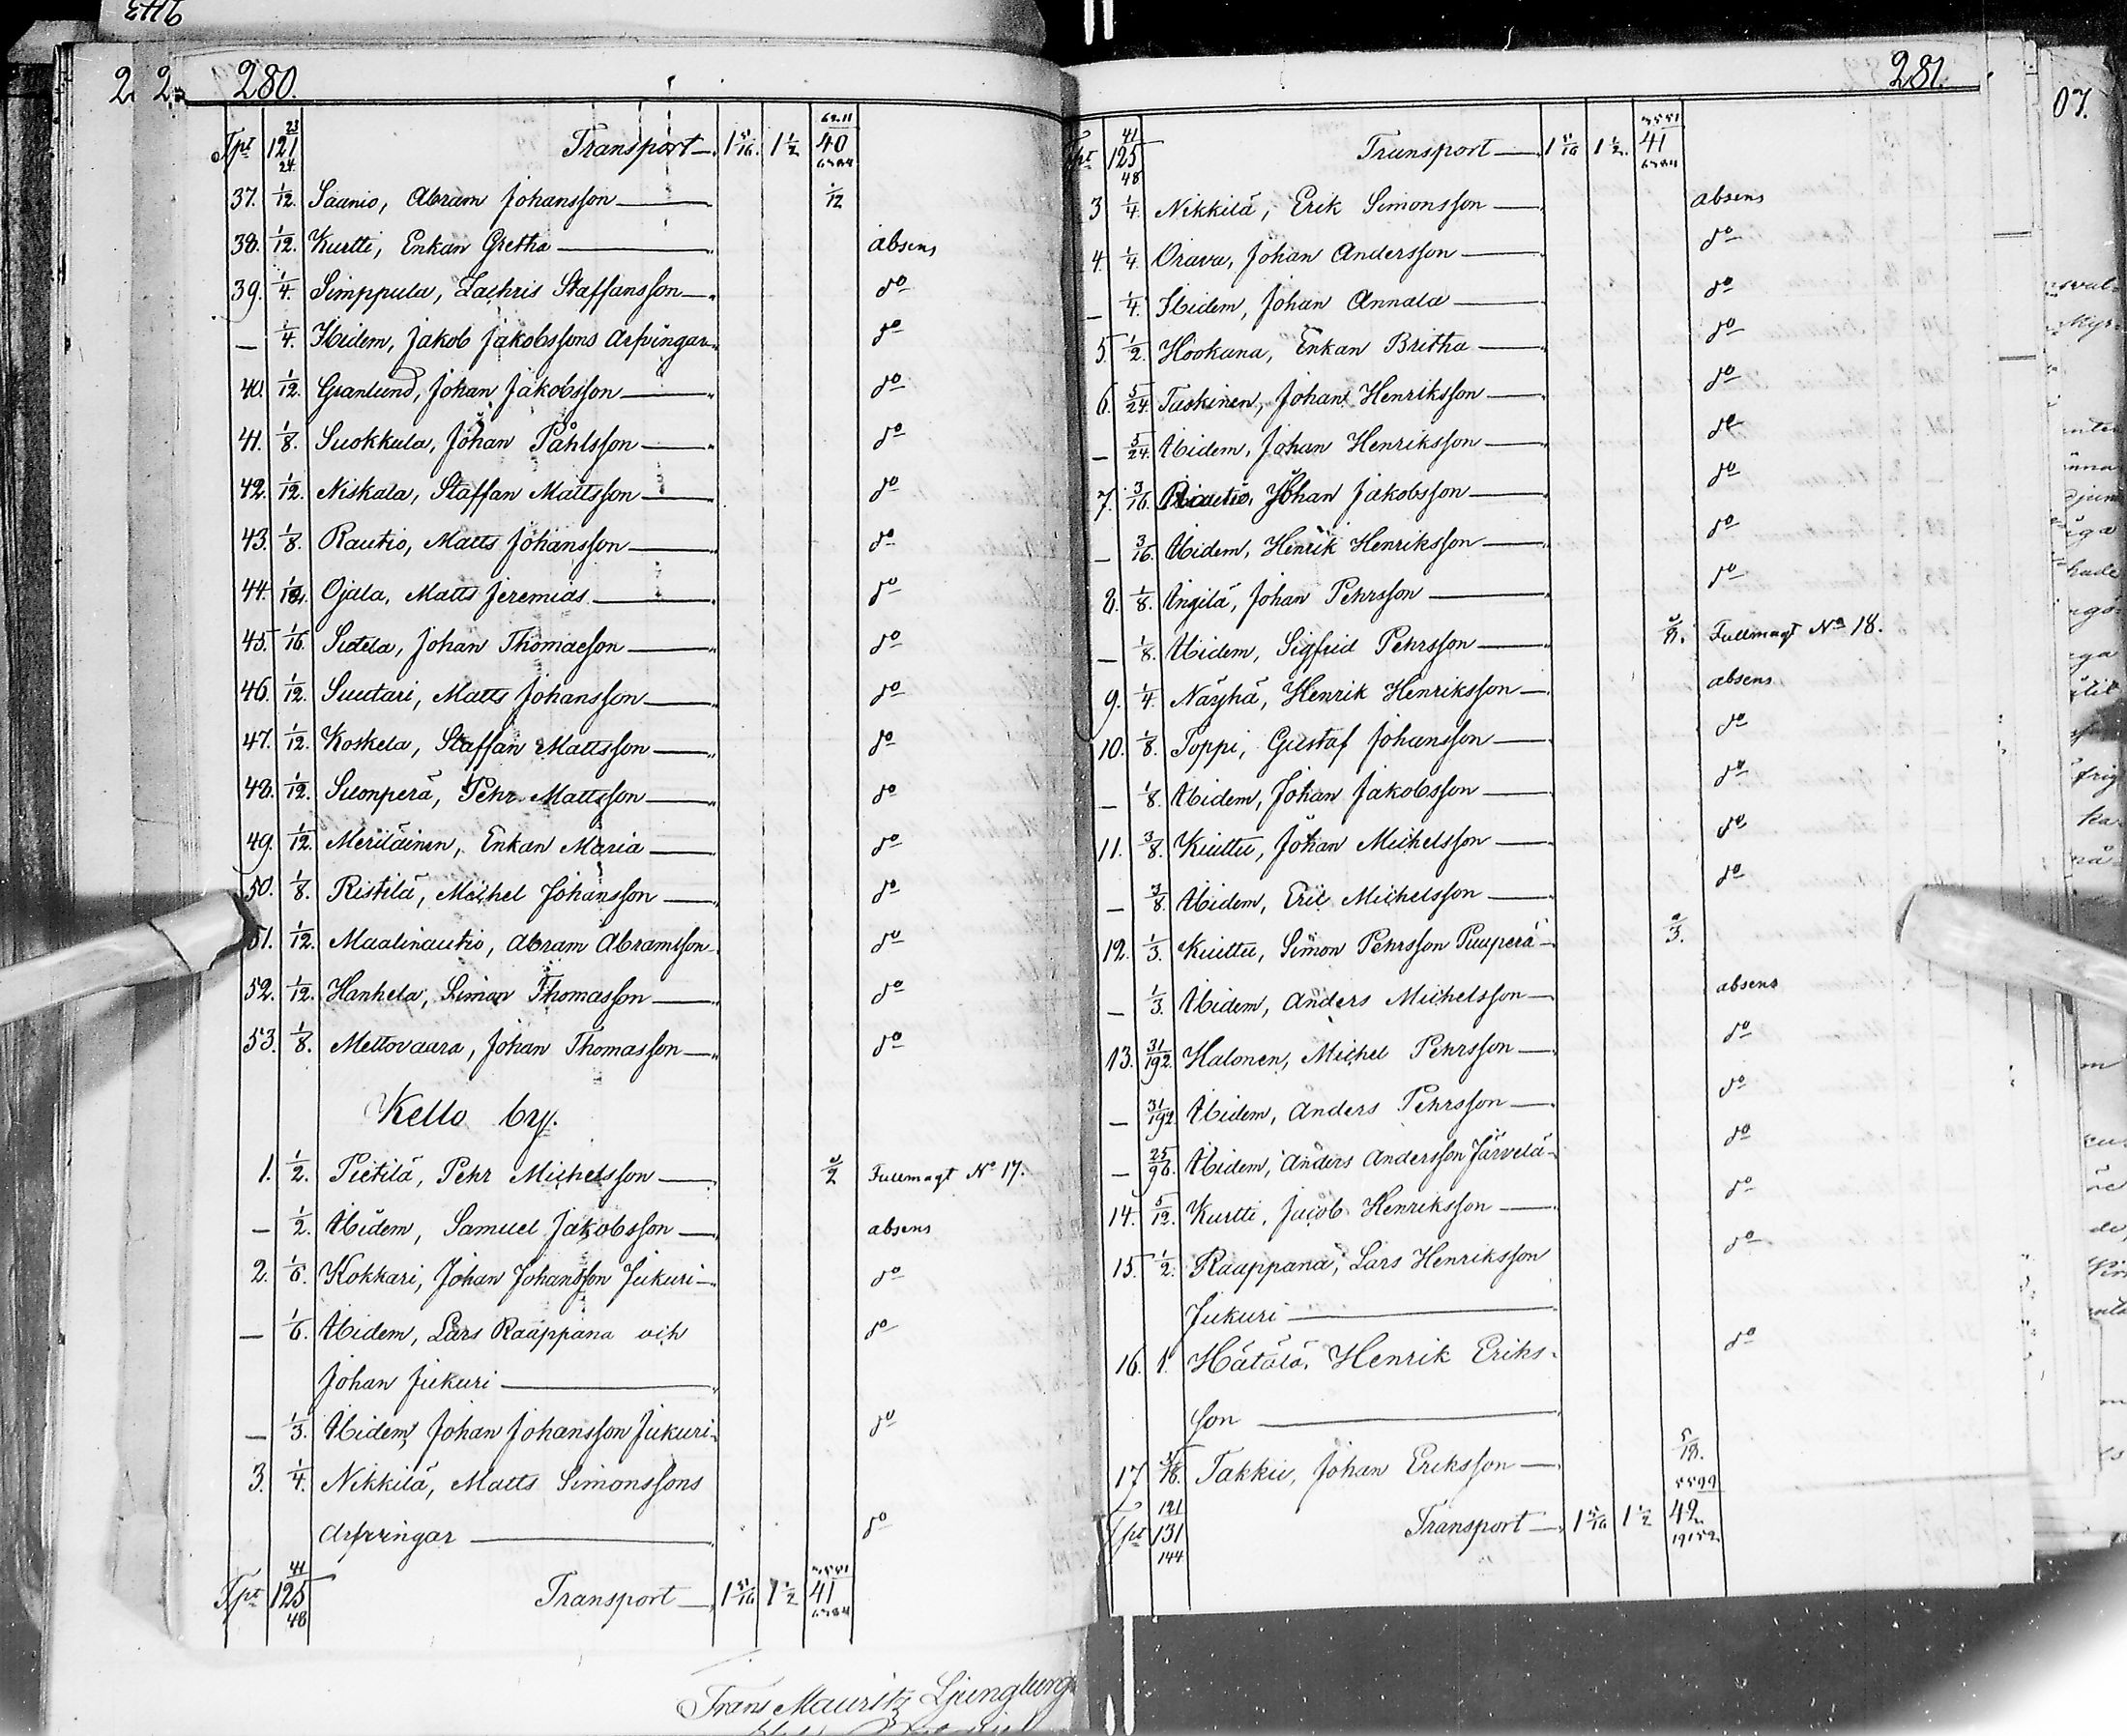 280.
Tpt 121 23/24. Transport 1 5/16. 1 1/2 40
37. 1/12. Saanio, Abram Johansson 1/12
38. 1/12. Kurtti, Enkan Gretha absens
39. 1/4. Simppula, Zachris Staffansson do
— 1/4. Ibidem, Jakob Jakobssons Arfvingar do
40. 1/12. Granlund, Johan Jakobsson do
41. 1/8. Suokkula, Johan Påhlsson do
42. 1/12. Niskala, Staffan Mattsson do
43. 1/8. Rautio, Matts Johansson do
44. Ojala, Matts Jeremias do
45. 1/16. Sutela, Johan Thomasson do
46. 1/12. Suutari, Matts Johansson do
47. 1/12. Koskela, Staffan Mattsson do
48. 1/12. Suonperä, Pehr Mattsson do
49. 1/12. Meriläinen, Enkan Maria do
50. 1/8. Ristilä, Michel Johansson do
51. 1/12. Maalinautio, Abram Abramsson do
52. 1/12. Hanhela, Simon Thomasson do
53. 1/8. Mettovaara, Johan Thomasson do
Kello by.
1. 1/2. Pietilä, Pehr Michelsson 1/2 Fullmagt No 17.
— 1/2. Ibidem, Samuel Jakobsson absens
2. 1/6. Kokkari, Johan Johansson Jukuri do
— 1/6. Ibidem, Lars Raappana och do
Johan Jukuri
— 1/3. Ibidem, Johan Johansson Jukuri do
3. 1/4. Nikkilä, Matts Simonssons
Arfvingar do
Tpt 125 41/48 Transport 1 5/16 1 1/2 41
Frans Mauritz Ljungberg
281.
Tpt 125 41/48 Transport 1 5/16 1 1/2. 41
3 1/4. Nikkilä, Erik Simonsson absens
4. 1/4. Orava, Johan Andersson do
— 1/4. Ibidem, Johan Annala do
5. 1/2. Hookana, Enkan Britha do
6. 5/24. Taskinen, Johan Henriksson do
— 5/24. Ibidem, Johan Henriksson do
7. 3/16. Rautio, Johan Jakobsson do
— 3/16. Ibidem, Henrik Henriksson do
8. 1/8. Ängilä, Johan Pehrsson do
— 1/8. Ibidem, Sigfrid Pehrsson 1/8. Fullmagt No 18.
9. 1/4. Näyhä, Henrik Henriksson absens
10. 1/8. Toppi, Gustaf Johansson do
— 1/8. Ibidem, Johan Jakobsson do
11. 3/8. Kiuttu, Johan Michelsson do
— 3/8. Ibidem, Eric Michelsson do
12. 1/3. Kiuttu, Simon Pehrsson Puuperä 1/3.
— 1/3. Ibidem, Anders Michelsson absens
13. 31/192. Halonen, Michel Pehrsson do
— 31/192. Ibidem, Anders Pehrsson do
— 25/96. Ibidem, Anders Andersson Järvelä do
14. 5/12. Kurtti, Jacob Henriksson do
15. 1/2. Raappana, Lars Henriksson do
Jukuri
16. 1. Hätälä, Henrik Eriks- do
son
17 Takku, Johan Eriksson
Tpt 131 121/144 Transport 1 5/16 1 1/2 42